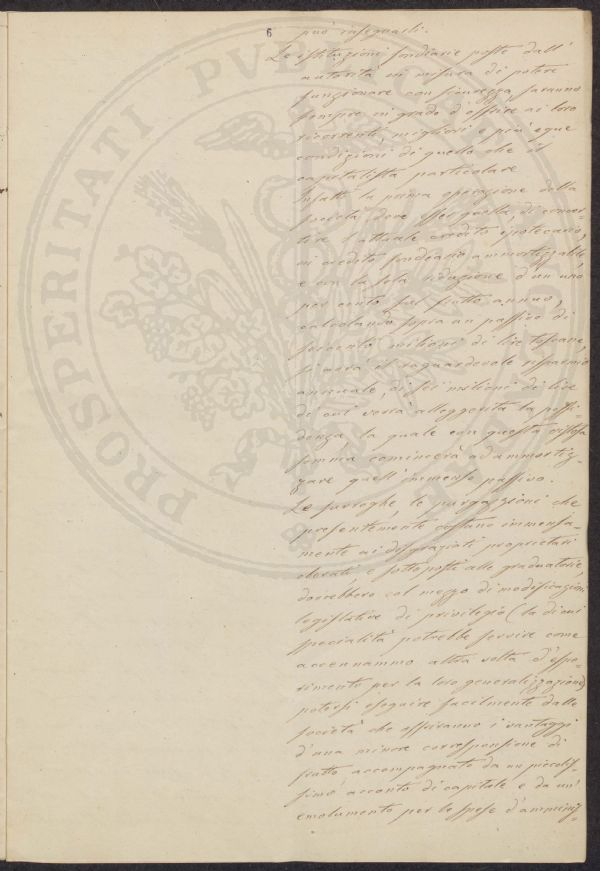 6
può rassegnarli.
Le istituzioni fondiarie poste dall'
autorità in misura di potere
funzionare con sicurezza, saranno
sempre in grado d'offrire ai loro
ricorrenti, migliori e più eque
condizioni di quello che il
capitalista particolare
Infatti la prima operazione della
società, deve esser quella, di conver-
tire l'attuale credito ipotecario,
in credito fondiario ammortizzabile,
e con la sola riduzione d'un uno
per cento sul frutto annuo,
calcolando sopra un passivo di
secento milioni di lire toscane,
si avrà il ragguardevole risparmio
annuale, di sei milioni di lire
di cui verrà alleggerita la possi-
denza la quale con questa istessa
somma comincerà ad ammortiz-
zare quell'immenso passivo.
Le surroghe, le purgazioni che
presentemente costano immensa-
mente ai disgraziati proprietari
oberati, e sottoposti alle graduatorie,
dovrebbero col mezzo di modificazioni
legislative di privilegio (la di cui
specialità potrebbe servire come
accennammo altra volta d'espe-
rimento per la loro generalizzazione)
potersi eseguire facilmente dalle
società che offriranno i vantaggi
d'una minore corresponsione di
frutto, accompagnato da un piccolis-
simo acconto di capitale e da un'
emolumento per le spese d'amminis-
PROSPERITATI PVBLICAE